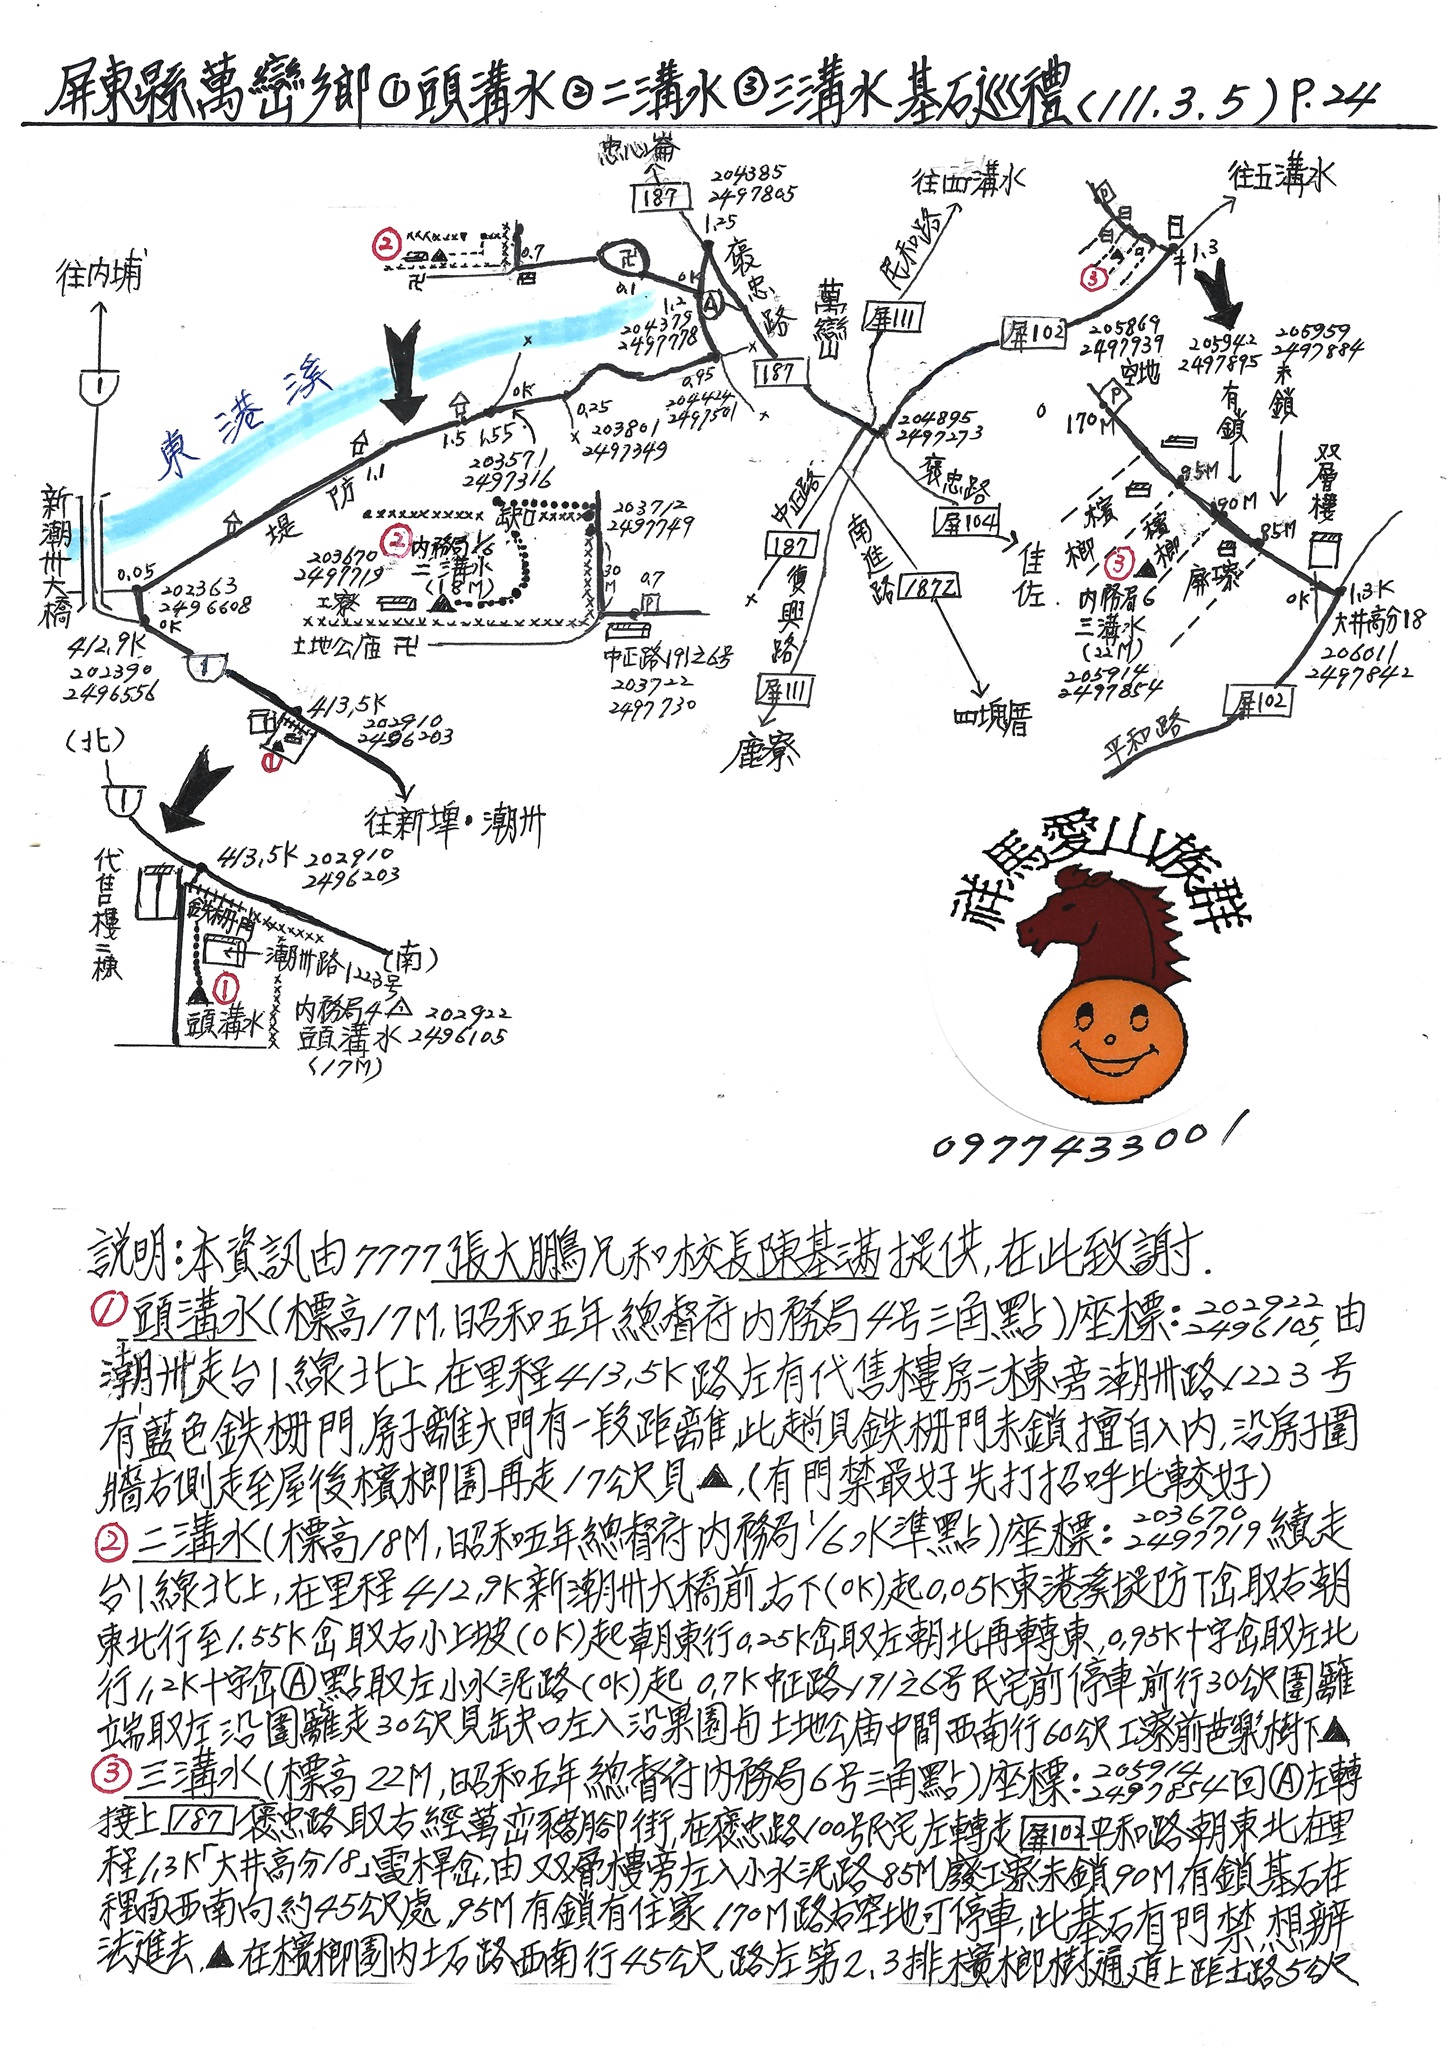 屏東縣萬巒鄉①頭溝水②二溝水③三溝水基石巡禮(111.3.5)P.24
忠心崙
187
204385
2497805
1.25
褒忠路
往四溝水
民和路
往五溝水
1.3
往內埔
②
0.7
卍
卍
0.1
0K
1.2
A
204379
2497778
萬巒山
屏111
屏102
205869
2497939
空地
205942
2497895
有鎖
205959
2497884
未鎖
③
1
東港溪
187
0.95
204424
2497501
204895
2497273
P
170M
双層樓
0K
1.5
1.55
0.25
203801
2497349
203571
2497316
1.1
堤防
褒忠路
屏104
佳佐
95M
90M
85M
檳榔
檳榔
屏塚
新潮卅大橋
缺口
203712
2497749
②
內務局1/6
二溝水
(18M)
203670
2497719
工寮
土地公庙 卍
30M
0.7
P
中正路191之6号
203722
2497730
中正路
187
復興路
南進路
187乙
屏111
鹿寮
四塊厝
③
內務局6
三溝水
(22M)
205914
2497854
0K
1.3K
大井高分18
206011
2497842
屏102
平和路
0.05
202363
2496608
0K
412.9K
202390
2496556
1
413.5K
202910
2496203
①
往新埤·潮卅
(北)
1
代售樓二棟
413.5K 202910
2496203
鉄柵門
潮卅路1223号
(南)
①
頭溝水
內務局4
頭溝水
(17M)
202922
2496105
祥馬愛山族群
0977433001
説明:本資訊由7777張大鵬兄和校長陳基满提供,在此致謝.
①頭溝水(標高17M,昭和五年總督府內務局4号三角點)座標:202922 2496105,由
潮卅走台1線北上,在里程413.5K路左有代售樓房二棟旁潮卅路1223号
有藍色鉄柵門,房子離大門有一段距離,此趟見鉄柵門未鎖擅自入內,沿房子圍
牆右側走至屋後檳榔園再走17公尺見▲,(有門禁最好先打招呼比較好)
②二溝水(標高18M,昭和五年總督府內務局1/6水準點)座標:203670 2497719續走
台1線北上,在里程412.9K新潮卅大橋前右下(0K)起0.05K東港溪堤防T岔取右朝
東北行至1.55K岔取右小上坡(0K)起朝東行0.25K岔取左朝北再轉東,0.95K十字岔取左北
行1.2K十字岔Ⓐ點取左小水泥路(0K)起,0.7K中正路191之6号民宅前停車前行30公尺圍籬
端取左沿圍籬走30公尺見缺口左入沿果園与土地公庙中間西南行60公尺工寮前芭樂樹下▲
③三溝水(標高22M,昭和五年總督府內務局6号三角點)座標:205914 2497854回Ⓐ左轉
接上187褒忠路取右經萬巒豬腳街,在褒忠路100号民宅左轉走屏102平和路朝東北,在里
程1.3K「大井高分18」電桿岔,由双層樓旁左入小水泥路85M廢工寮未鎖90M有鎖基石在
裡面西南向約45公尺處,95M有鎖有住家,170M路右空地可停車,此基石有門禁,想辦
法進去,▲在檳榔園內土石路西南行45公尺,路左第2.3排檳榔樹通道上距土路5公尺